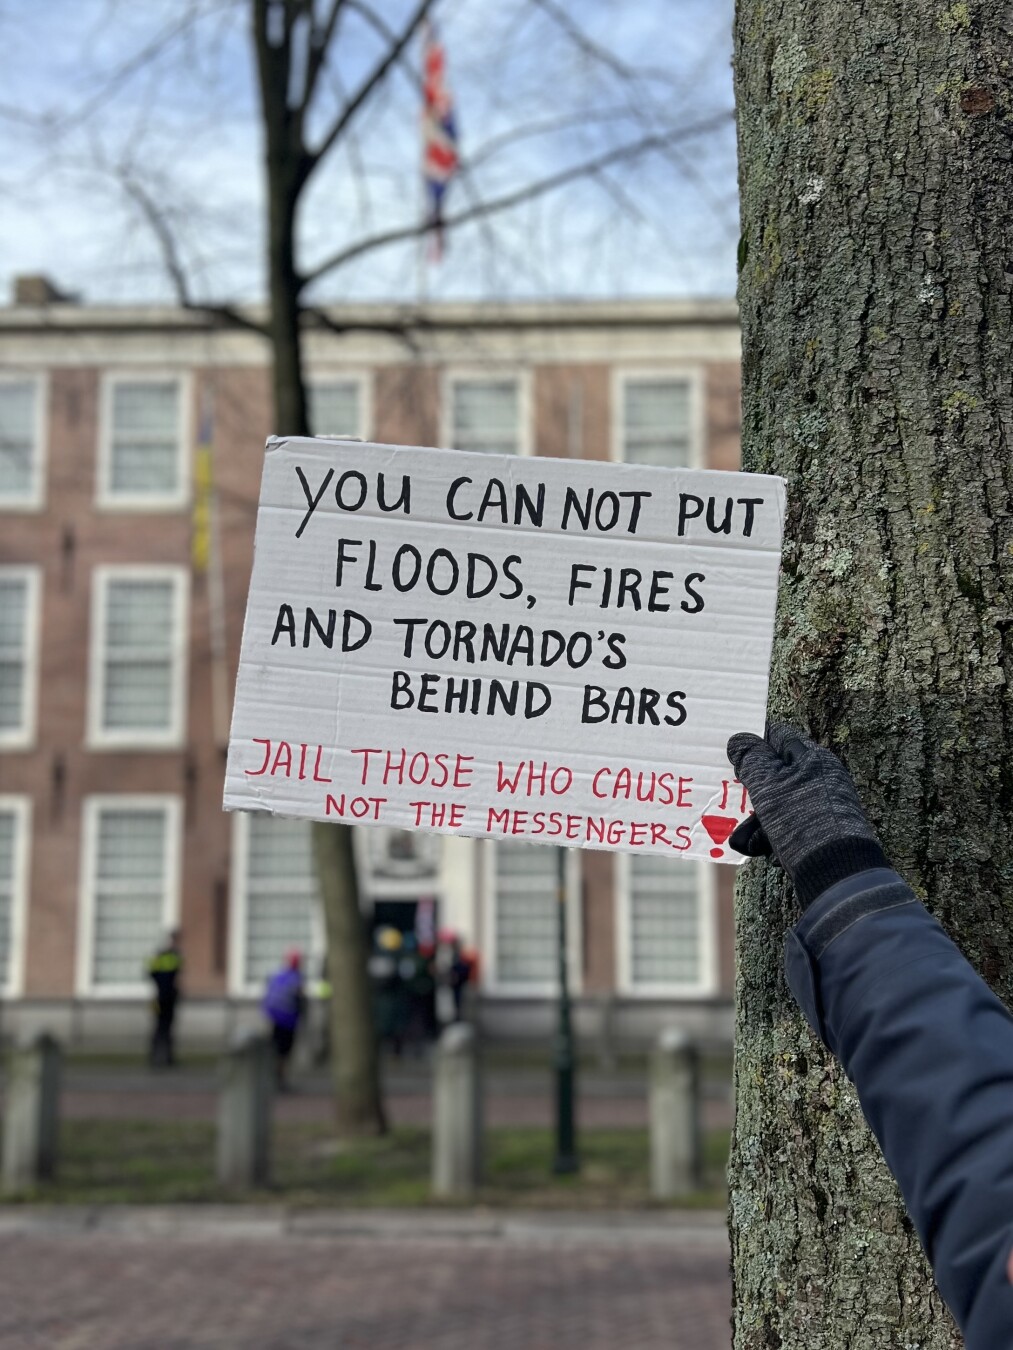 YOU CAN NOT PUT
FLOODS, FIRES
AND TORNADO'S
BEHIND BARS
JAIL THOSE WHO CAUSE IT
NOT THE MESSENGERS!